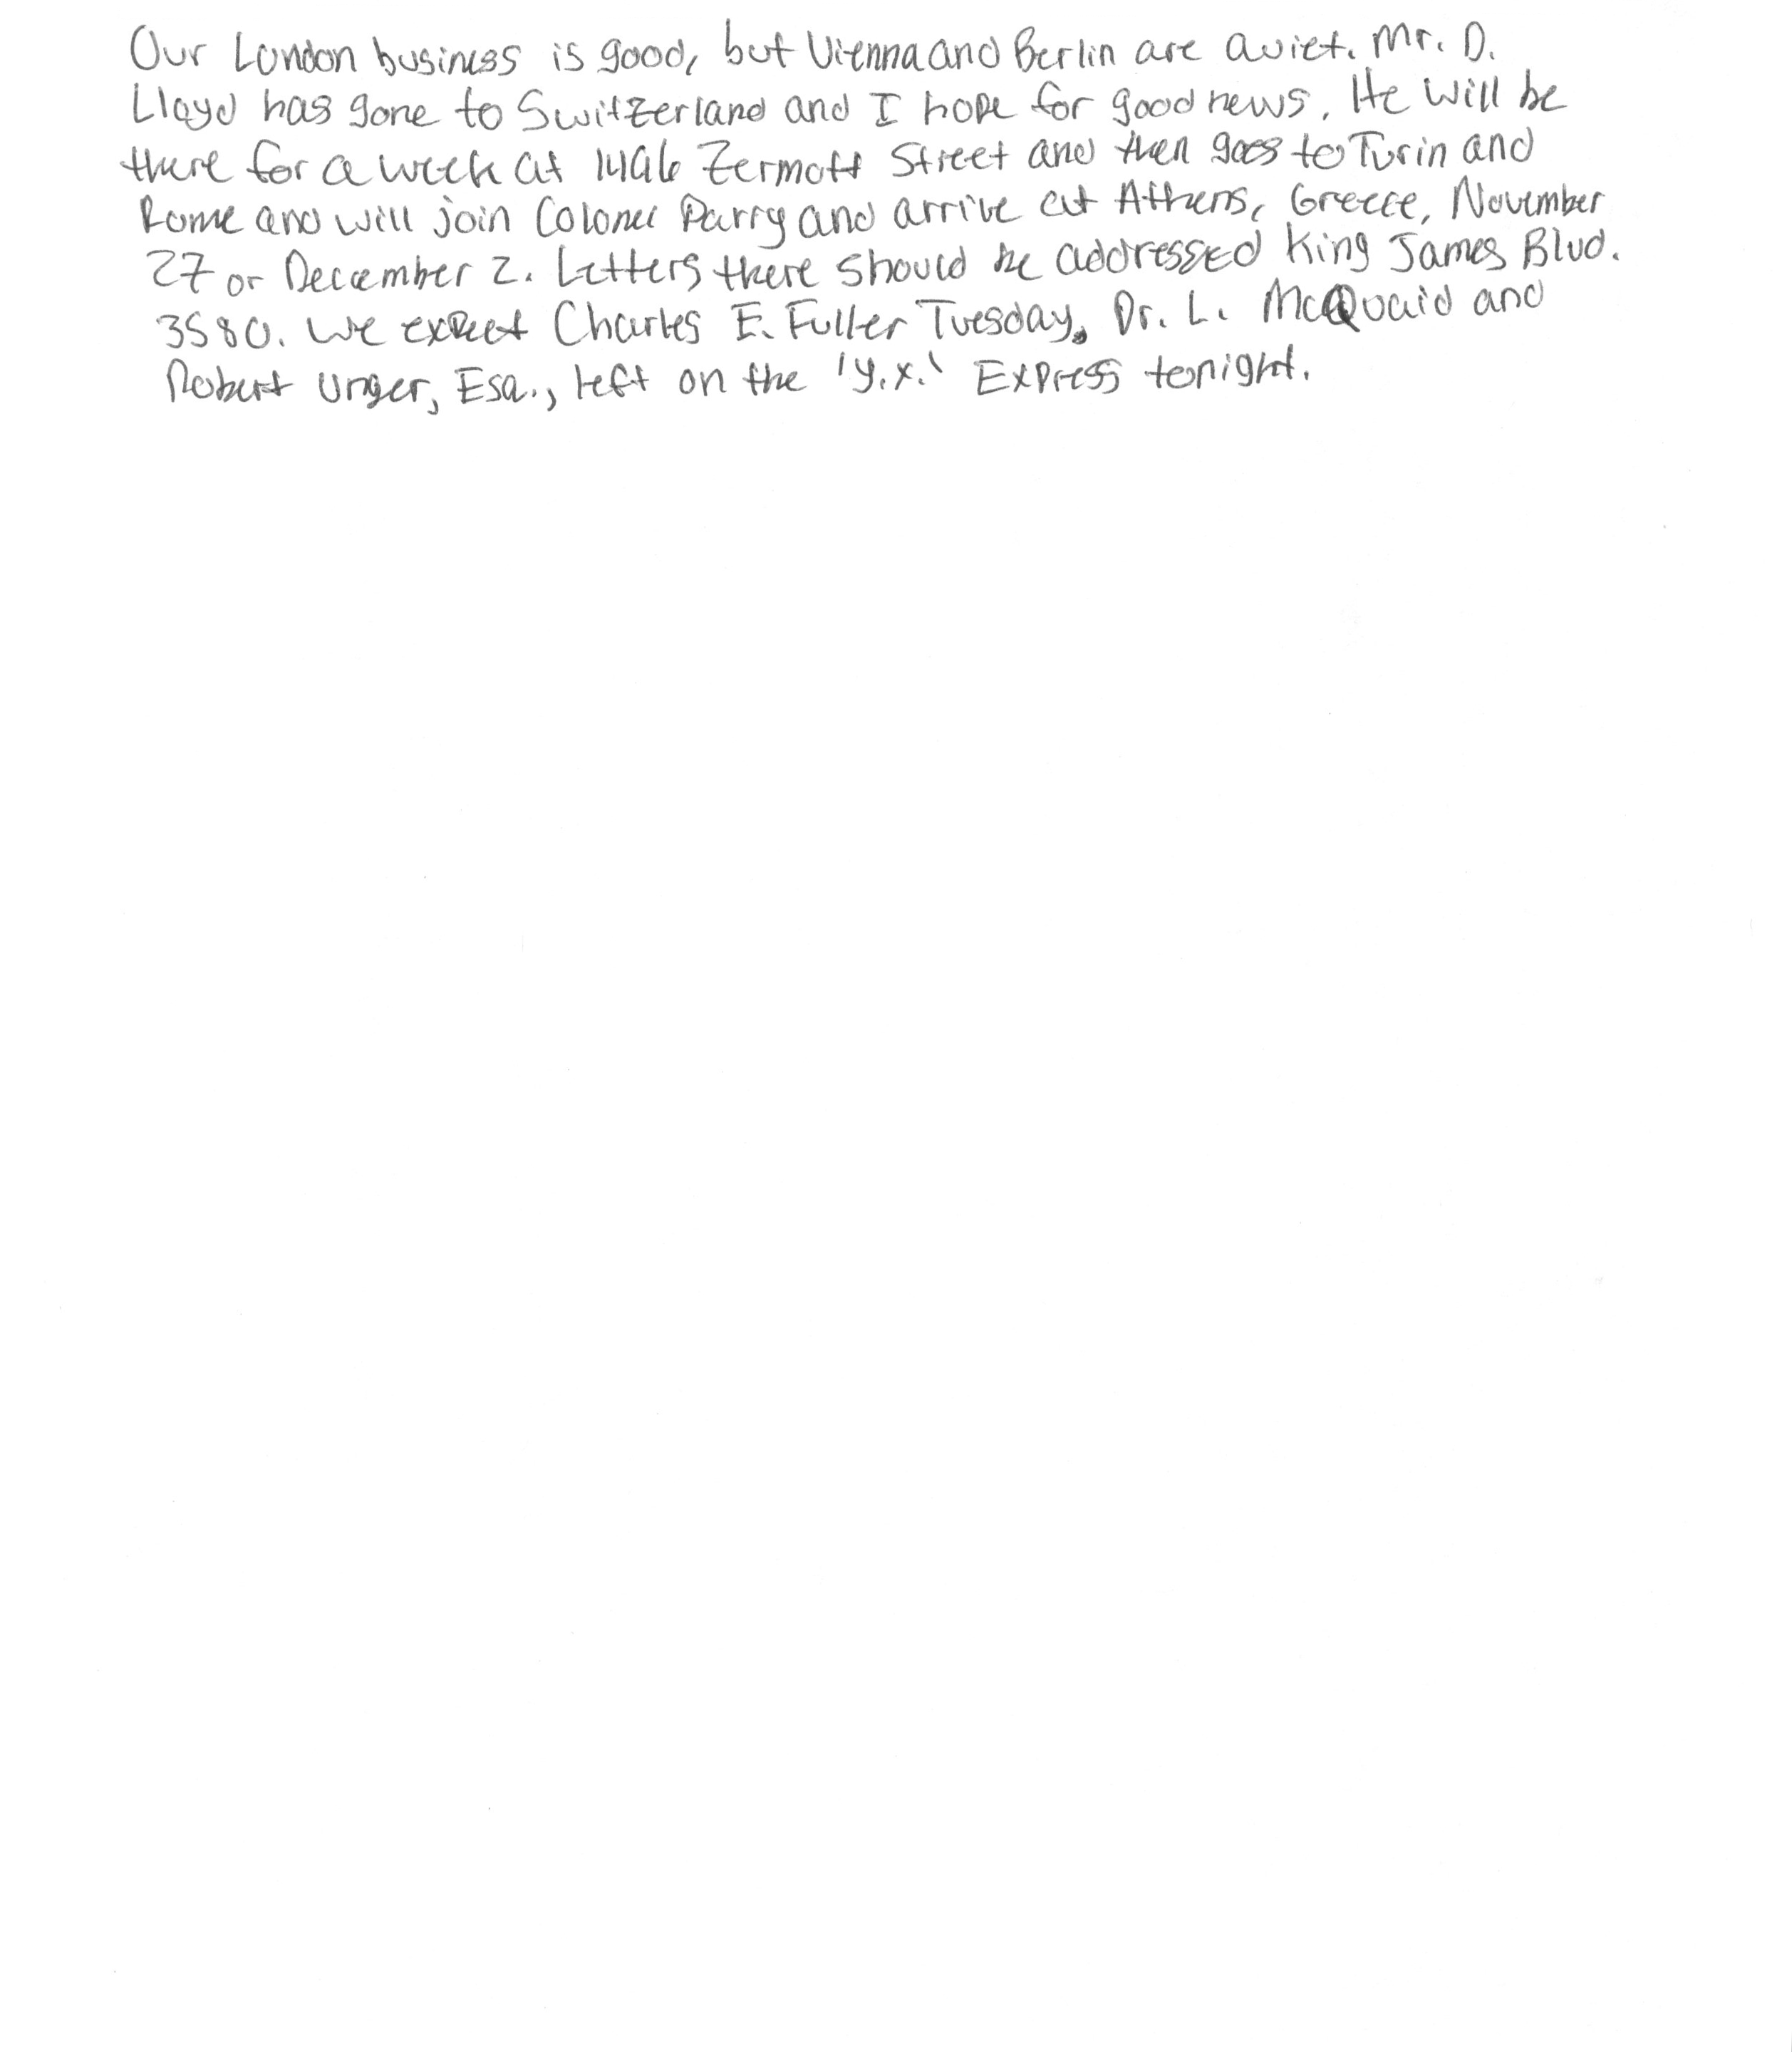 Our London business is good, but Vienna and Berlin are quiet. Mr. D.
Lloyd has gone to Switzerland and I hope for good news. He will be
there for a week at 1496 Zermott Street and then goes to Turin and
Rome and will join Colonel Parry and arrive at Athens, Greece, November
27 or December 2. Letters there should be addressed King James Blvd.
3580. We expect Charles E. Fuller Tuesday. Dr. L. McQuaid and
Robert Unger, Esq., left on the 'Y.X.' Express tonight.